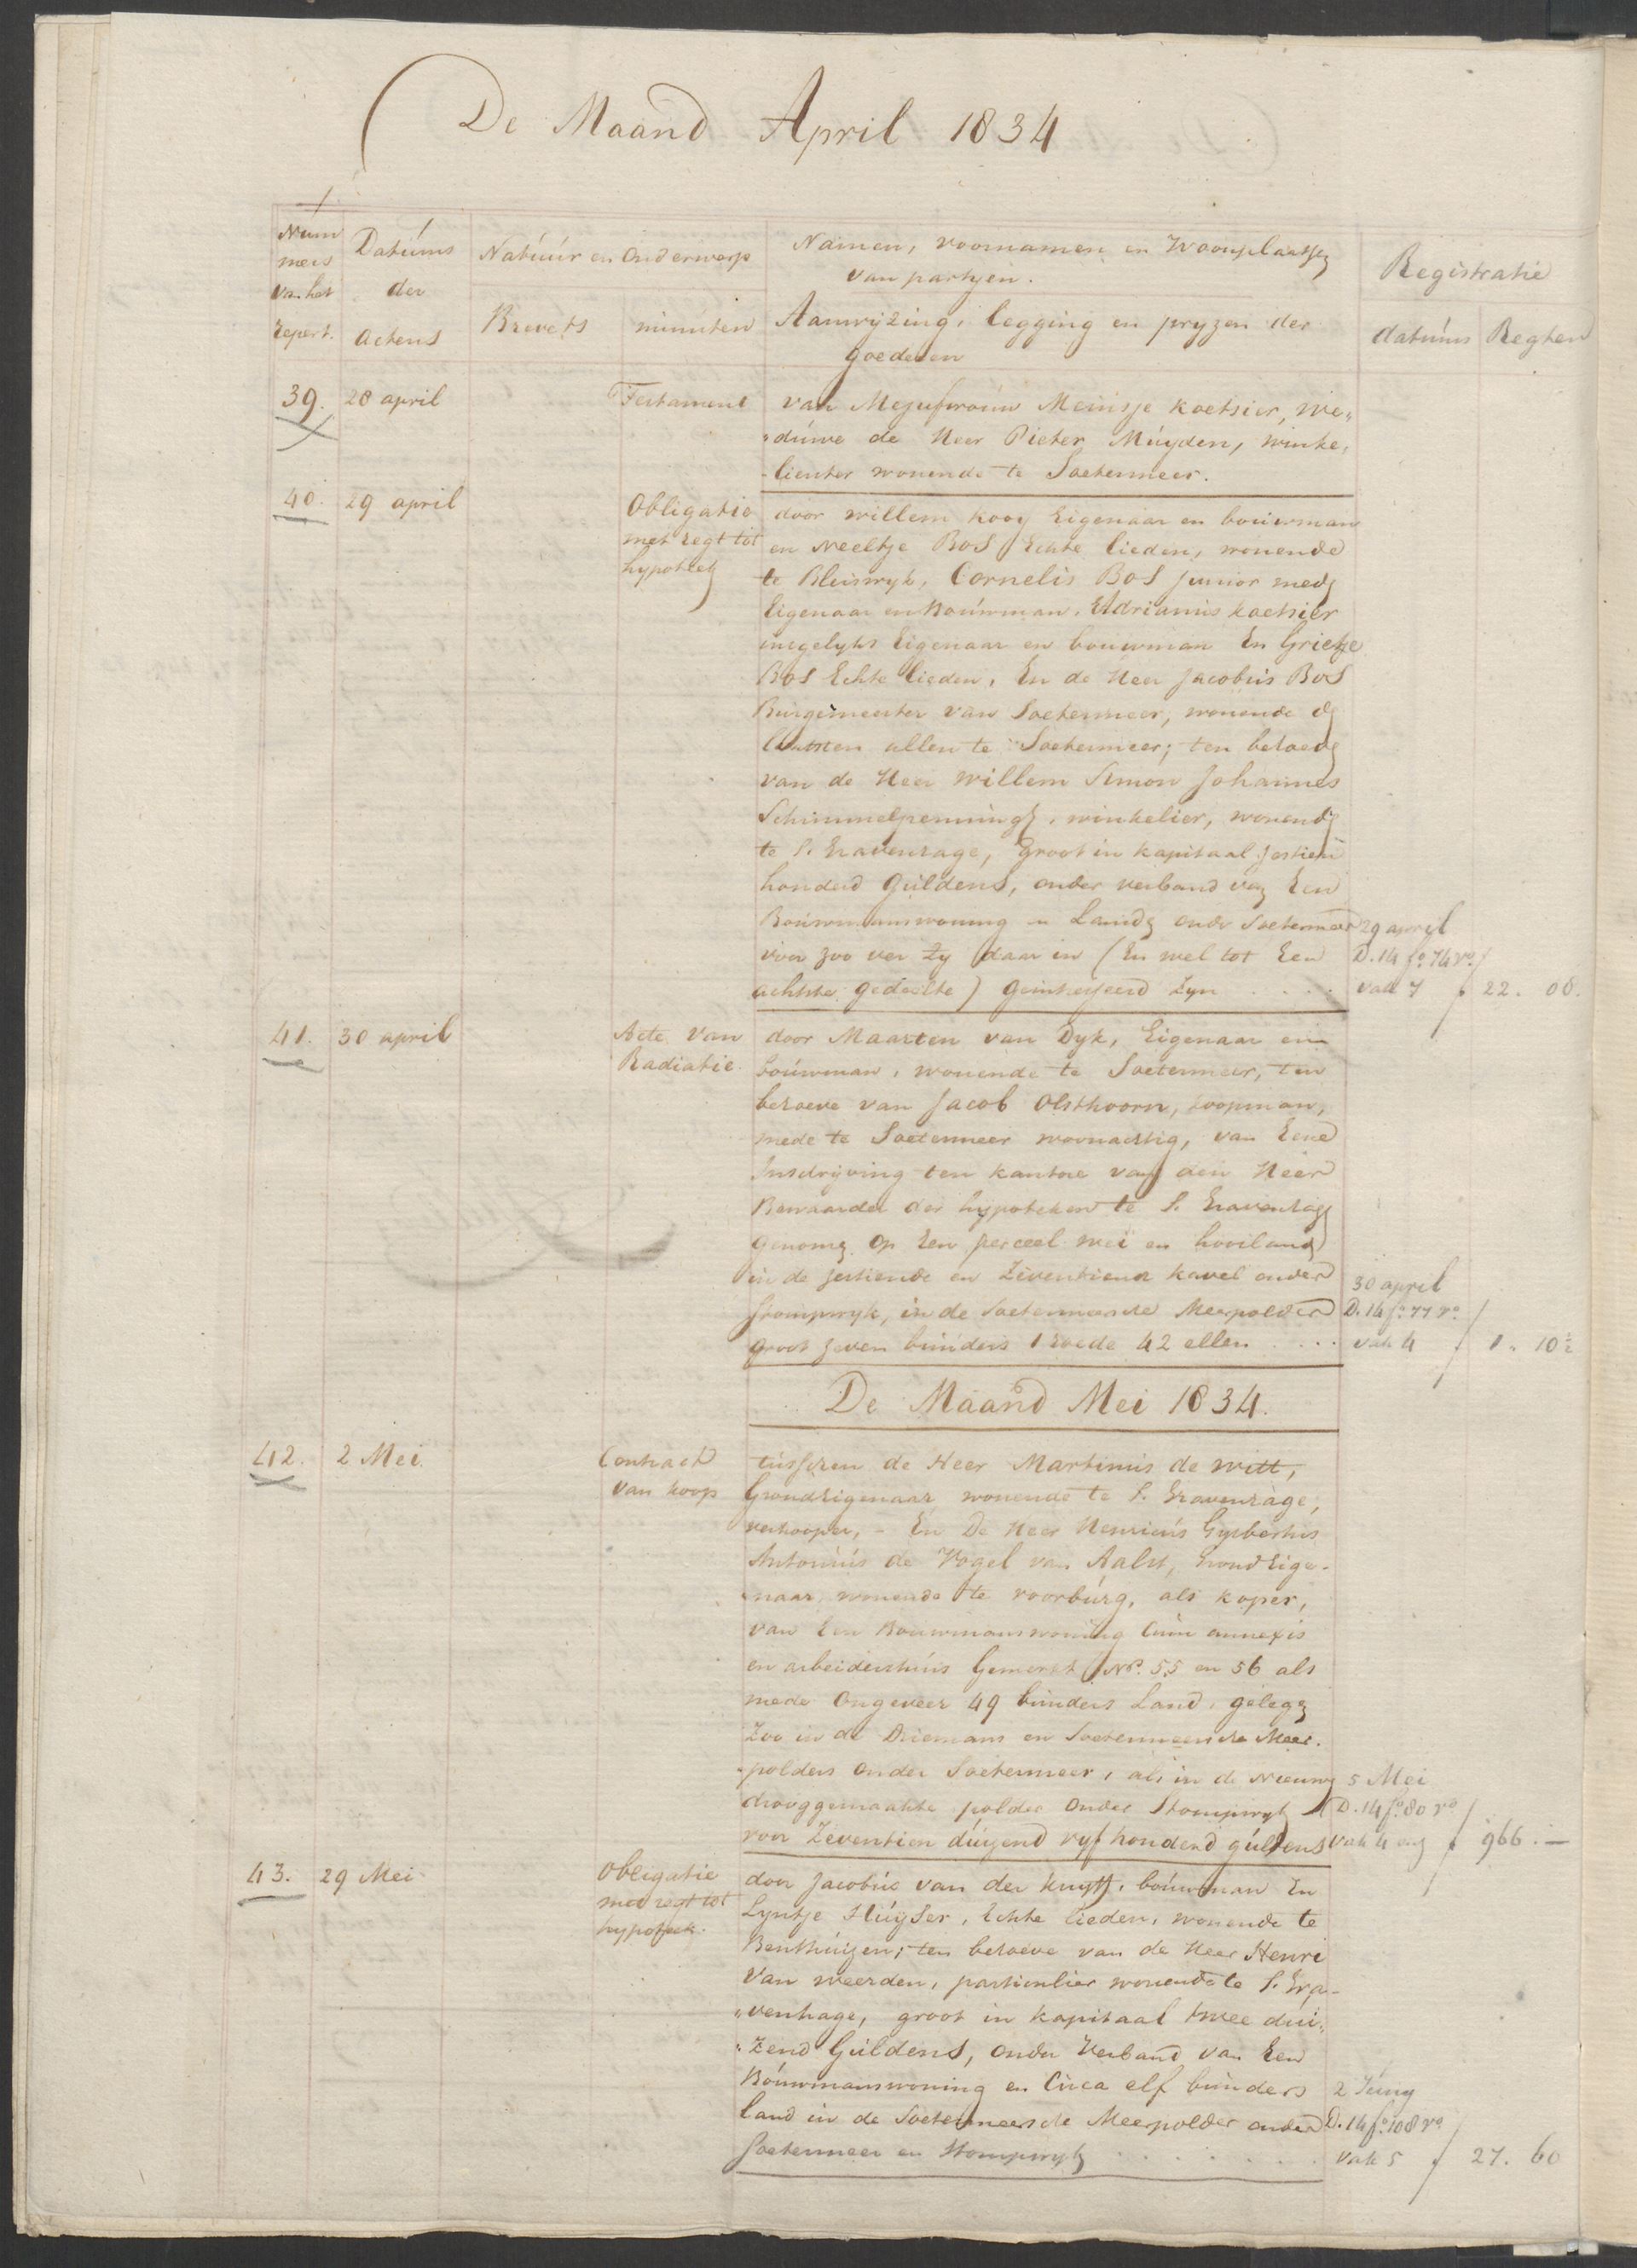 De Maand April 1834
Num
mers
van het
repert.
Datúms
der
Actens
Natúúr en Onderwerp
Brevets
minúten
Namen, voornamen en Woonplaatsen
van partyen.
Aanwyzing, legging en pryzen der
goederen
Registratie
datúms
Regten
39.
28 april
Testament
van Mejufvrouw Meinsje Koetsier, We„
„dúwe de Heer Pieter Múyden, winke„
-lierster wonende te Soetermeer.
40.
29 april
Obligatie
met regt tot
hypotheek
door willem kooy Eigenaar en bouwman
en Neeltje Bos Echte lieden, wonende
te Bleiswyk, Cornelis Bos junior mede
Eigenaar en Bouwman, Adrianus koetsier
insgelyks Eigenaar en bouwman En Grietje
Bos Echte lieden, En de Heer Jacobus Bos
Burgemeester van Soetermeer, wonende de
laatsten allen te Soetermeer; ten behoeve
van de Heer Willem Simon Johannes
Schimmelpenningh, winkelier, wonende
te S. Gravenhage, Groot in kapitaal zestien
honderd Guldens, onder verband van Een
Bouwmanswoning en Landen onder Soetermeer
voor zoo ver Zy daar in (En wel tot Een
achtste gedeelte) Geinteresseerd Zyn
29 april
D. 14 fo. 74 vo.
vak 7
f 22. 08.
41.
30 april
Acte van
Radiatie.
door Maarten van Dyk, Eigenaar en
bouwman, wonende te Soetermeer, ten
behoeve van Jacob Olsthoorn, koopman,
mede te Soetermeer woonachtig, van Eene
Inschryving ten kantore van den Heer
Bewaarder der hypotheken te S. Gravenhage
Genomen Op Een perceel wei en hooiland
in de zestiende en Zeventiende kavel onder
Stompwyk, in de Soetermeersche Meerpolder
groot zeven bunders 1 roede 42 ellen
30 april
D. 14 fo. 77 ro.
vak 4
f 1. 10½
De Maand Mei 1834.
42.
2 Mei.
Contract
van koop
tusschen de Heer Martinus de Witt,
Grondeigenaar wonende te S. Gravenhage,
verkooper, - En De Heer Henricus Gysbertus
Antoniús de Vogel van Aalst, GrondEige-
naar, wonende te voorbúrg, als koper,
van Een Bouwmanswoning Cum annexis
en arbeidershuis Gemerkt No. 55 en 56 als
mede Ongeveer 49 bunders Land, gelegen
Zoo in de Driemans en Soetermeersche Meer.
polders Onder Soetermeer, als in de Nieuwe
drooggemaakte polder Onder Stompwyk
voor Zeventien dúizend vyf honderd gúldens
5 Mei
D. 14 fo. 80 vo.
vak 4 en
f 966. —
43.
29 Mei
Obligatie
met regt tot
hypotheek.
door Jacobus van der kruyk, bouwman En
Lyntje Húyser, Echte lieden, wonende te
Benthúizen; ten behoeve van de Heer Henri
van weerden, particulier wonende te S. Gra-
„venhage, groot in kapitaal twee dúi„
„zend Guldens, onder Verband van Een
Bouwmanswoning en Circa elf bunders
land in de Soetermeersche Meerpolder onder
Soetermeer en Stompwyk
2 Júny
D. 14 fo. 108 vo.
vak 5
f 27. 60